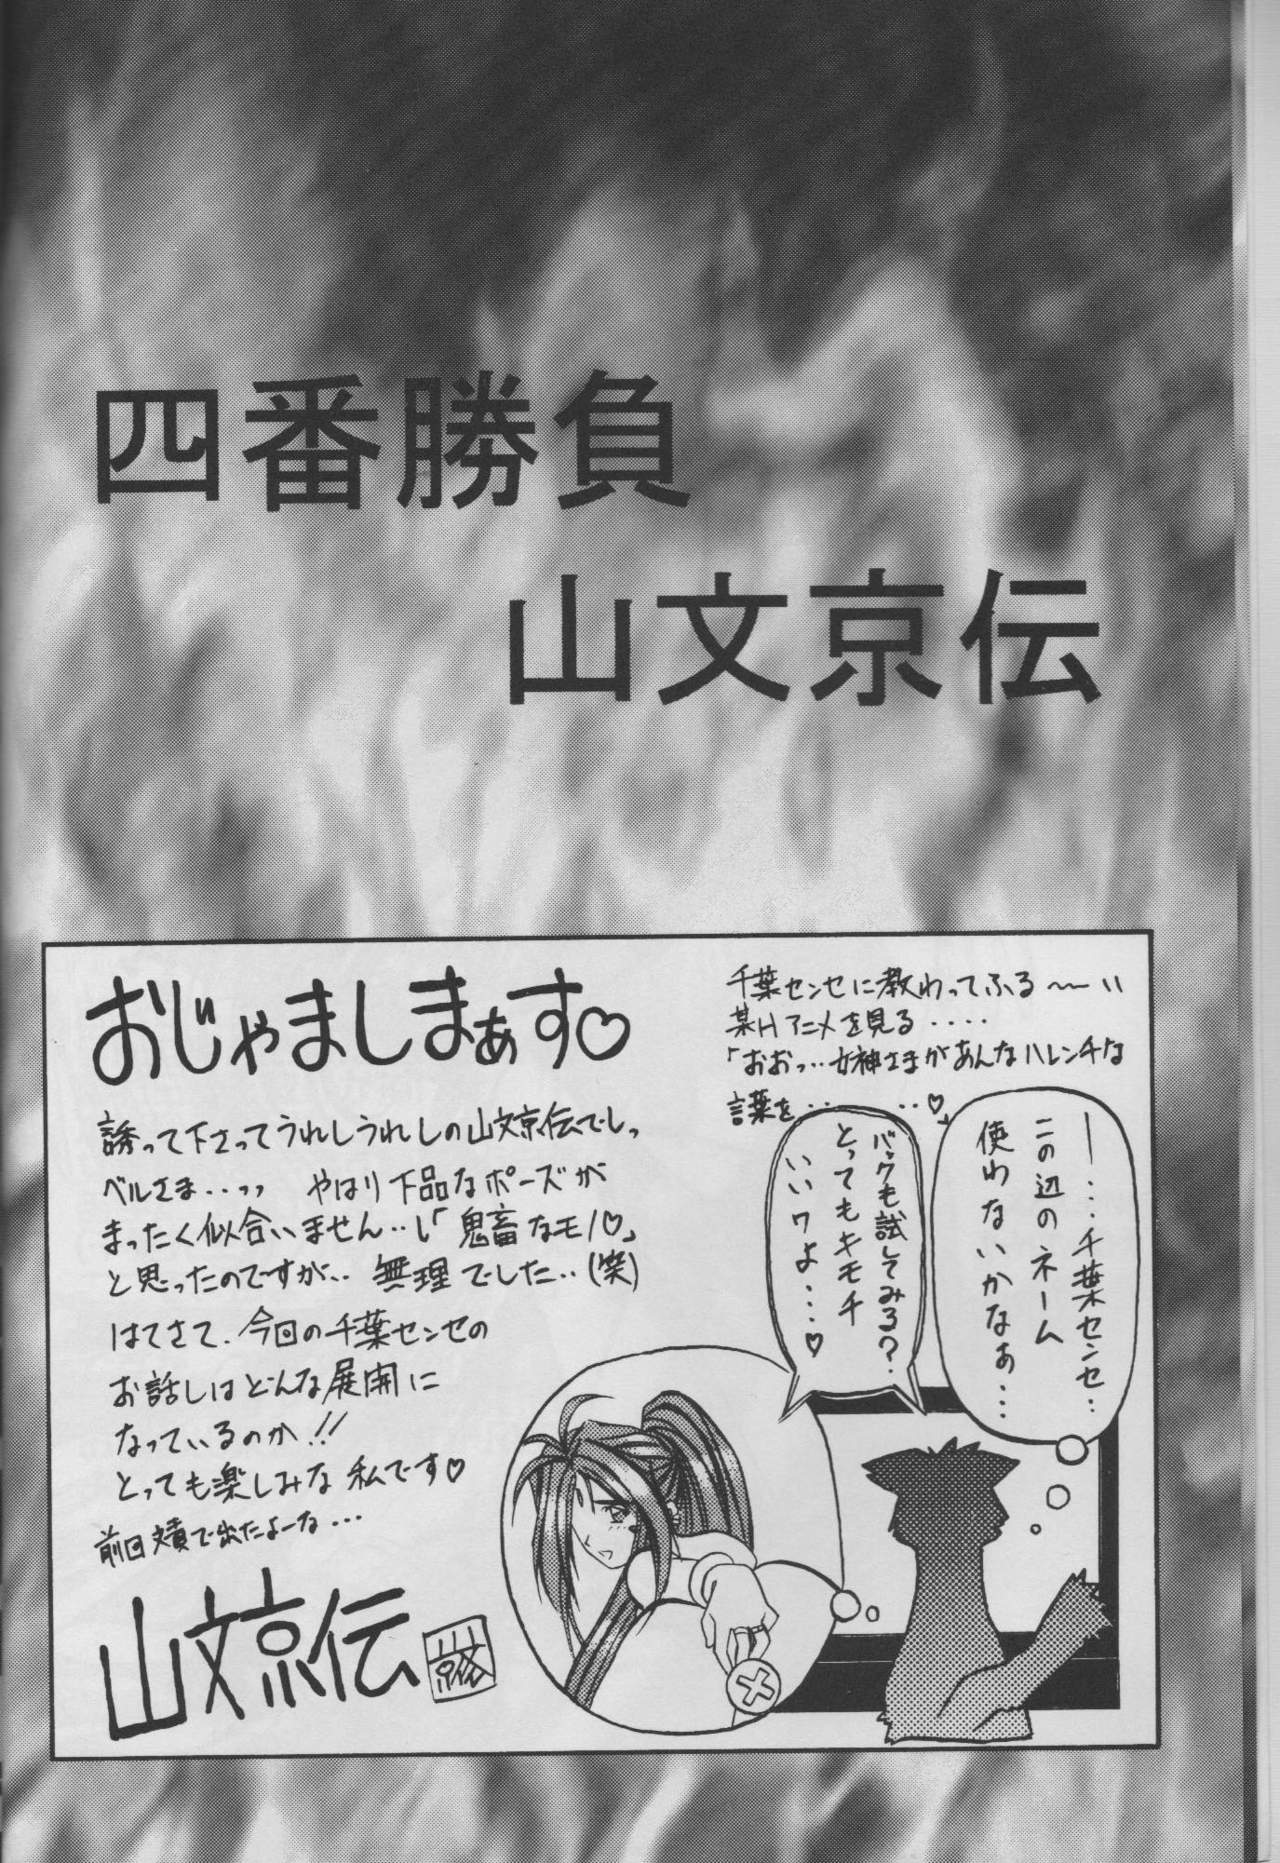 四番勝負
山文京伝
おじゃましまぁす♡
誘って下さってうれしうれしの山文京伝でしっ
ベルさま・・っっ やはり下品なポーズが
まったく似合いません・・し「鬼畜なモノ♡」
と思ったのですが・・無理でした・・(笑)
はてさて、今回の千葉センセの
お話しはどんな展開に
なっているのか!!
とっても楽しみな私です♡
前回 で出たよーな・・・
山文京伝
千葉センセに教わってふる〜〜い
某Hアニメを見る・・・・
「おおっ・・・女神さまがあんなハレンチな
言葉を・・・・・♡」
ー・・・千葉センセ・・
この辺のネーム
使わないかなぁ・・・
バックも試してみる?・・
とってもキモチ
いいワよ・・・♡